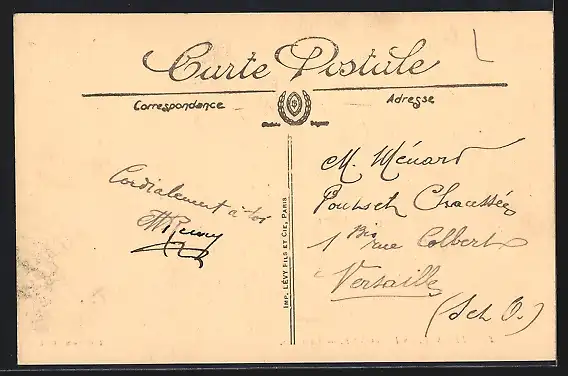 Carte Postale
Correspondance
Adresse
Cordialement à toi
IMP. LÉVY FILS ET CIE, PARIS
M. Ménard
Ponts et Chaussées
1 Bis rue Colbert
Versailles
(S et O.)